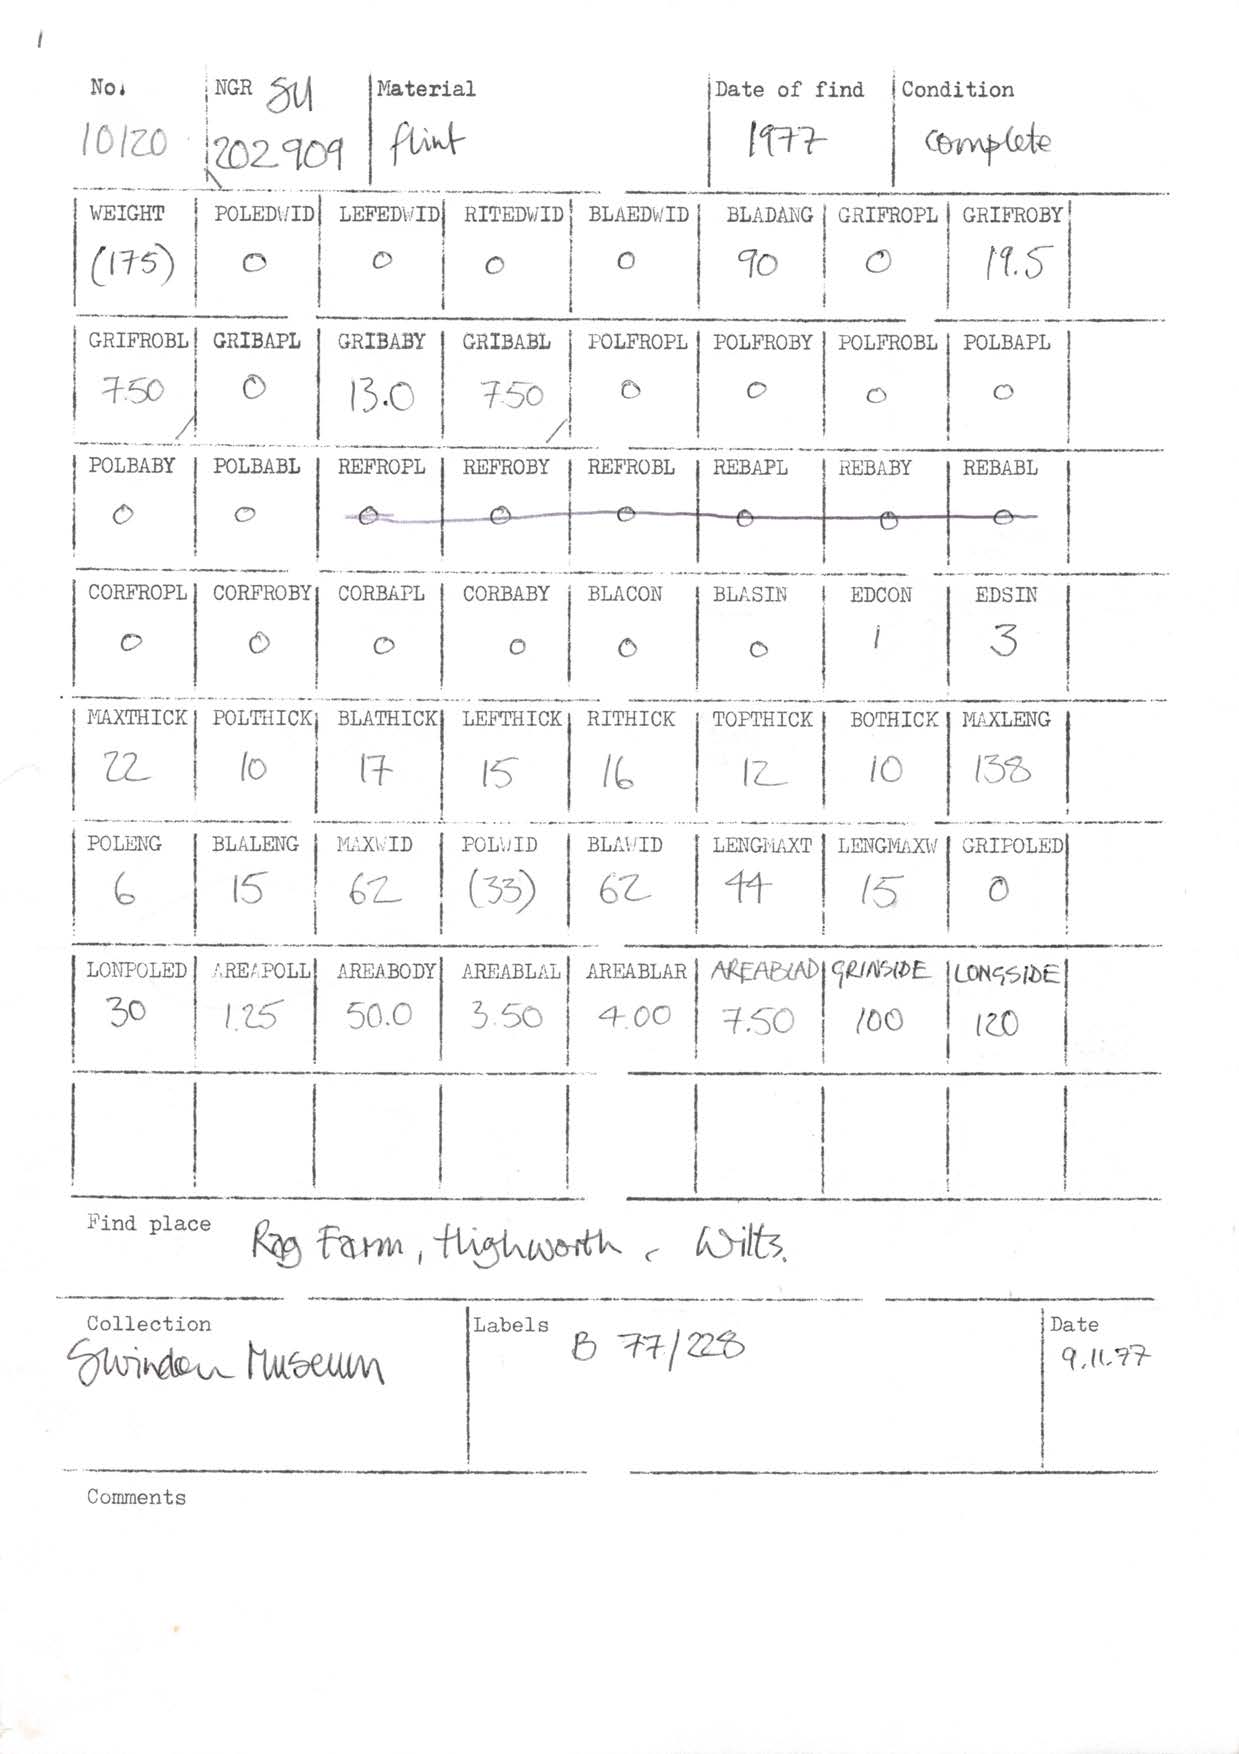 1
No. NGR SU Material Date of find Condition
10/20 202 909 flint 1977 complete
WEIGHT POLEDWID LEFEDWID RITEDWID BLAEDWID BLADANG GRIFROPL GRIFROBY
(175) 0 0 0 0 90 0 19.5
GRIFROBL GRIBAPL GRIBABY GRIBABL POLFROPL POLFROBY POLFROBL POLBAPL
7.50 0 13.0 7.50 0 0 0 0
POLBABY POLBABL REFROPL REFROBY REFROBL REBAPL REBABY REBABL
0 0 0 0 0 0 0 0
CORFROPL CORFROBY CORBAPL CORBABY BLACON BLASIN EDCON EDSIN
0 0 0 0 0 0 1 3
MAXTHICK POLTHICK BLATHICK LEFTHICK RITHICK TOPTHICK BOTHICK MAXLENG
22 10 17 15 16 12 10 138
POLENG BLALENG MAXWID POLWID BLAWID LENGMAXT LENGMAXW GRIPOLED
6 15 62 (33) 62 44 15 0
LONPOLED AREAPOLL AREABODY AREABLAL AREABLAR AREABLAD GRINSIDE LONGSIDE
30 1.25 50.0 3.50 4.00 7.50 100 120
Find place Rag Farm, Highworth, Wilts.
Collection Labels B 77/228 Date
Swindon Museum 9.11.77
Comments